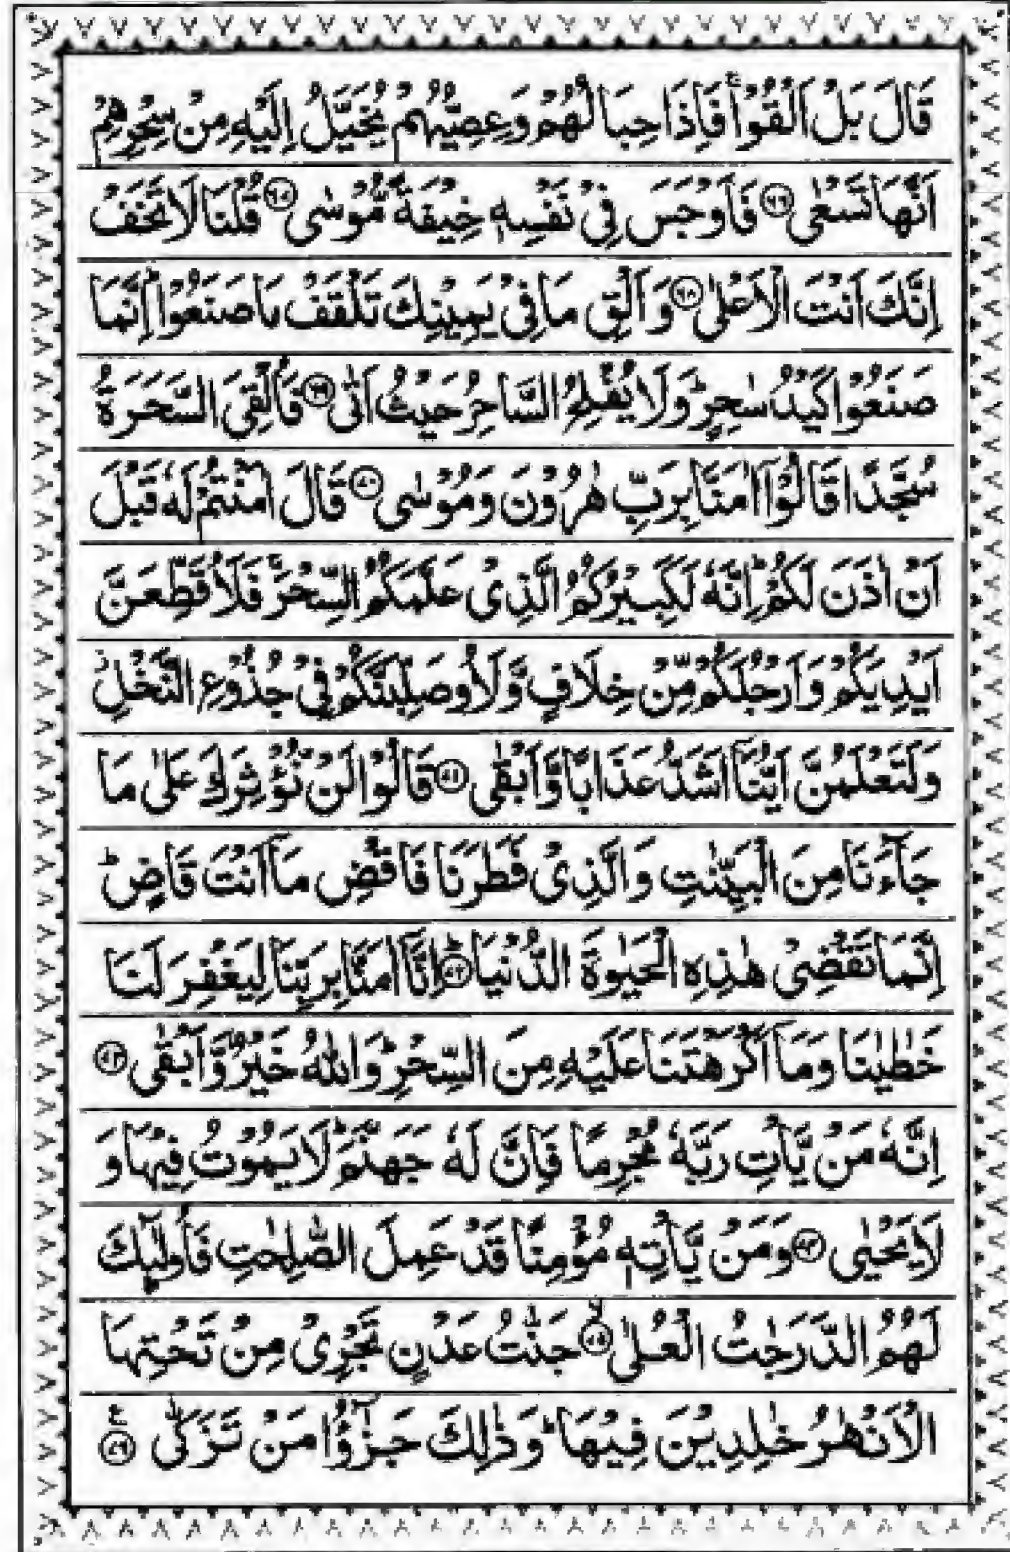 قَالَ بَلْ اَلْقُوْاۚ فَاِذَا حِبَالُهُمْ وَعِصِيُّهُمْ يُخَيَّلُ اِلَيْهِ مِنْ سِحْرِهِمْ
اَنَّهَا تَسْعٰى ۝۶۶ فَاَوْجَسَ فِيْ نَفْسِهٖ خِيْفَةً مُّوْسٰى ۝۶۷ قُلْنَا لَا تَخَفْ
اِنَّكَ اَنْتَ الْاَعْلٰى ۝۶۸ وَاَلْقِ مَا فِيْ يَمِيْنِكَ تَلْقَفْ مَا صَنَعُوْاؕ اِنَّمَا
صَنَعُوْا كَيْدُ سٰحِرٍؕ وَلَا يُفْلِحُ السَّاحِرُ حَيْثُ اَتٰى ۝۶۹ فَاُلْقِيَ السَّحَرَةُ
سُجَّدًا قَالُوْۤا اٰمَنَّا بِرَبِّ هٰرُوْنَ وَمُوْسٰى ۝۷۰ قَالَ اٰمَنْتُمْ لَهٗ قَبْلَ
اَنْ اٰذَنَ لَكُمْؕ اِنَّهٗ لَكَبِيْرُكُمُ الَّذِيْ عَلَّمَكُمُ السِّحْرَۚ فَلَاُقَطِّعَنَّ
اَيْدِيَكُمْ وَاَرْجُلَكُمْ مِّنْ خِلَافٍ وَّلَاُوصَلِّبَنَّكُمْ فِيْ جُذُوْعِ النَّخْلِؗ
وَلَتَعْلَمُنَّ اَيُّنَاۤ اَشَدُّ عَذَابًا وَّاَبْقٰى ۝۷۱ قَالُوْا لَنْ نُّؤْثِرَكَ عَلٰى مَا
جَآءَنَا مِنَ الْبَيِّنٰتِ وَالَّذِيْ فَطَرَنَا فَاقْضِ مَاۤ اَنْتَ قَاضٍؕ
اِنَّمَا تَقْضِيْ هٰذِهِ الْحَيٰوةَ الدُّنْيَاؕ ۝۷۲ اِنَّاۤ اٰمَنَّا بِرَبِّنَا لِيَغْفِرَ لَنَا
خَطٰيٰنَا وَمَاۤ اَكْرَهْتَنَا عَلَيْهِ مِنَ السِّحْرِؕ وَاللّٰهُ خَيْرٌ وَّاَبْقٰى ۝۷۳
اِنَّهٗ مَنْ يَّاْتِ رَبَّهٗ مُجْرِمًا فَاِنَّ لَهٗ جَهَنَّمَؕ لَا يَمُوْتُ فِيْهَا وَ
لَا يَحْيٰى ۝۷۴ وَمَنْ يَّاْتِهٖ مُؤْمِنًا قَدْ عَمِلَ الصّٰلِحٰتِ فَاُولٰٓئِكَ
لَهُمُ الدَّرَجٰتُ الْعُلٰىۙ ۝۷۵ جَنّٰتُ عَدْنٍ تَجْرِيْ مِنْ تَحْتِهَا
الْاَنْهٰرُ خٰلِدِيْنَ فِيْهَاؕ وَذٰلِكَ جَزٰٓؤُا مَنْ تَزَكّٰى ۝۷۶ ع